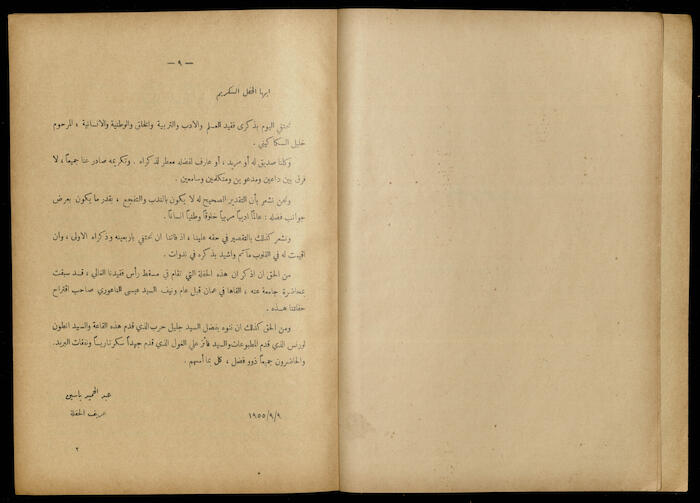 — ٩ —
ايها الحفل الكريم
نحتفي اليوم بذكرى فقيد العلم والادب والتربية والخلق والوطنية والانسانية ، المرحوم
خليل السكاكيني .
وكلنا صديق له أو مريد ، أو عارف لفضله معطر لذكراه . وتكريمه صادر عنا جميعاً ، لا
فرق بين داعين ومدعوين ومتكلمين وسامعين .
ونحن نشعر بأن التقدير الصحيح له لا يكون بالندب والتفجع ، بقدر ما يكون بعرض
جوانب فضله : عالماً اديباً مربياً خلوقاً وطنياً انساناً .
ونشعر كذلك بالتقصير في حقه علينا ، اذ فاتنا ان نحتفي باربعينه وذكراه الاولى ، وان
اقيمت له في القلوب مآتم واشيد بذكره في ندوات .
من الحق ان اذكر ان هذه الحفلة التي تقام في مسقط رأس فقيدنا الغالي ، قد سبقت
بمحاضرة جامعة عنه ، القاها في عمان قبل عام ونيف السيد عيسى الناعوري صاحب اقتراح
حفلتنا هذه .
ومن الحق كذلك ان ننوه بفضل السيد جليل حرب الذي قدم هذه القاعة والسيد انطون
لورنس الذي قدم المطبوعات والسيد فائز علي الغول الذي قدم جهداً سكرتارياً ونفقات البريد .
والحاضرون جميعاً ذوو فضل ، كل بما أسهم .
عبد الحميد ياسين
عريف الحفلة
١٩٥٥/٩/٩
٢